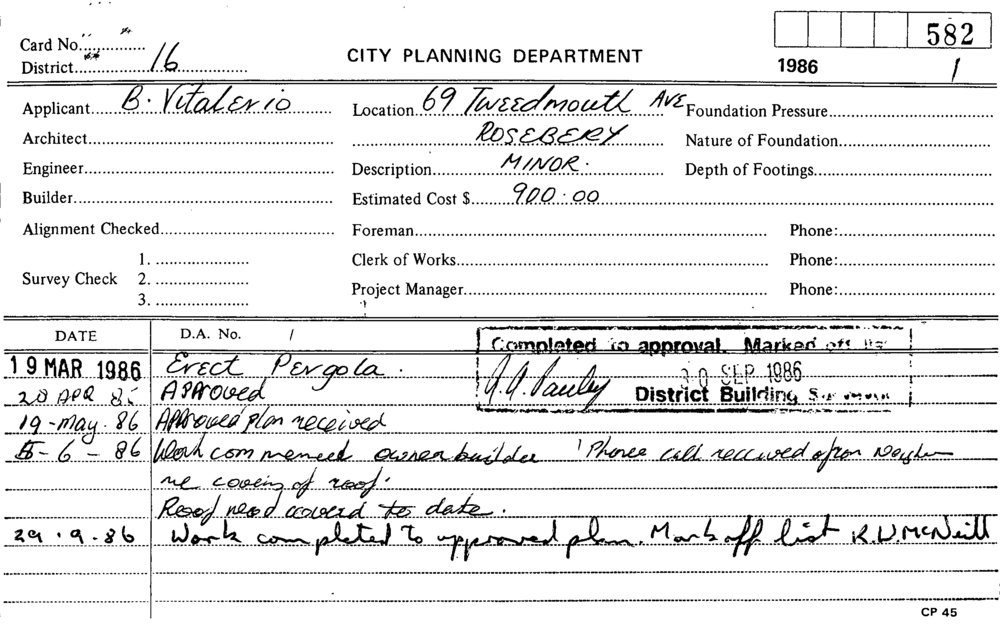 Card No.
District 16
CITY PLANNING DEPARTMENT
582
1986 1
Applicant B. Vitalerio
Location 69 Tweedmouth AVE
Foundation Pressure
Architect
ROSEBERY
Nature of Foundation
Engineer
Description MINOR.
Depth of Footings
Builder
Estimated Cost $ 900.00
Alignment Checked
Foreman
Phone:
Survey Check
1.
2.
3.
Clerk of Works
Phone:
Project Manager
Phone:
DATE D.A. No. /
Completed to approval. Marked off list
30 SEP 1986
District Building
19 MAR 1986 Erect Pergola.
28 APR 86 APPROVED
19-May.86 Approved plan received
5-6-86 Work commenced owner builder Phone call received from
re covering of roof.
Roof not covered to date.
29.9.86 Work completed to approved plan. Mark off list K.W.McNeill
CP 45